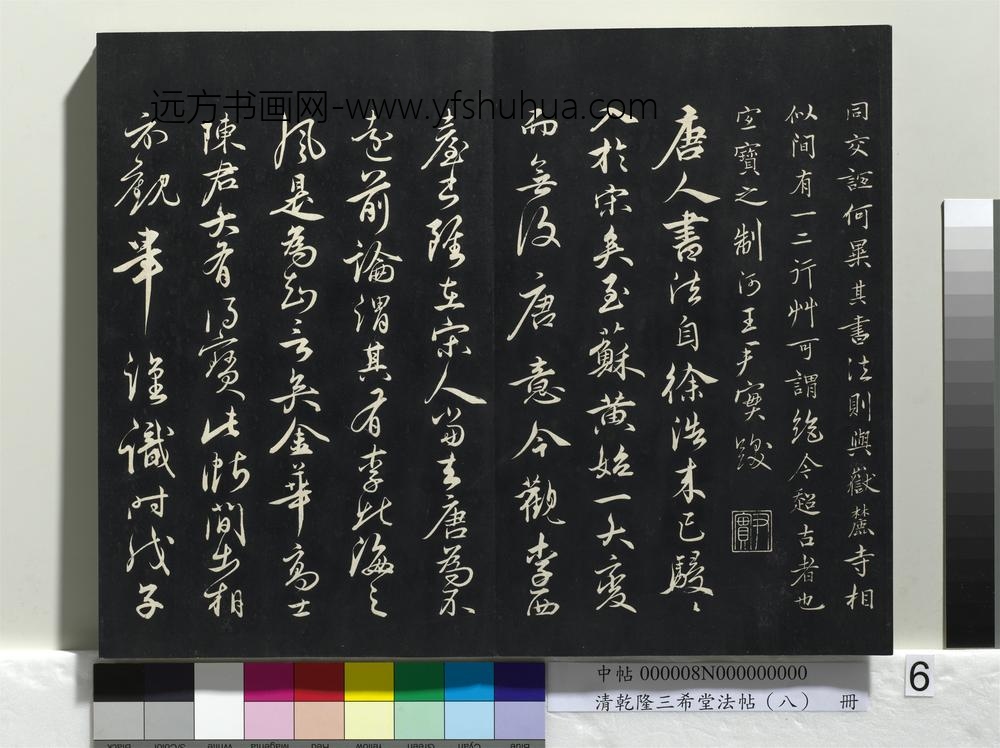 同交誑何異其書法則與嶽麓寺相
似間有一二行艸可謂絶今超古者也
宜寶之制河王尹實跋
尹實
唐人書法自徐浩來已駸〻
入於宋矣至蘇黃始一大變
而無復唐意今觀李西
臺書雖在宋人當去唐為不
遠前論謂其有李北海之
風是為知言矣金華高士
陳君大有得寶此斷簡出相
示觀畢謹識時戊子
远方书画网-www.yfshuhua.com
中帖 000008N000000000
清乾隆三希堂法帖（八） 冊
6
Black 3/Color White Magenta Red Yellow Green Cyan Blue